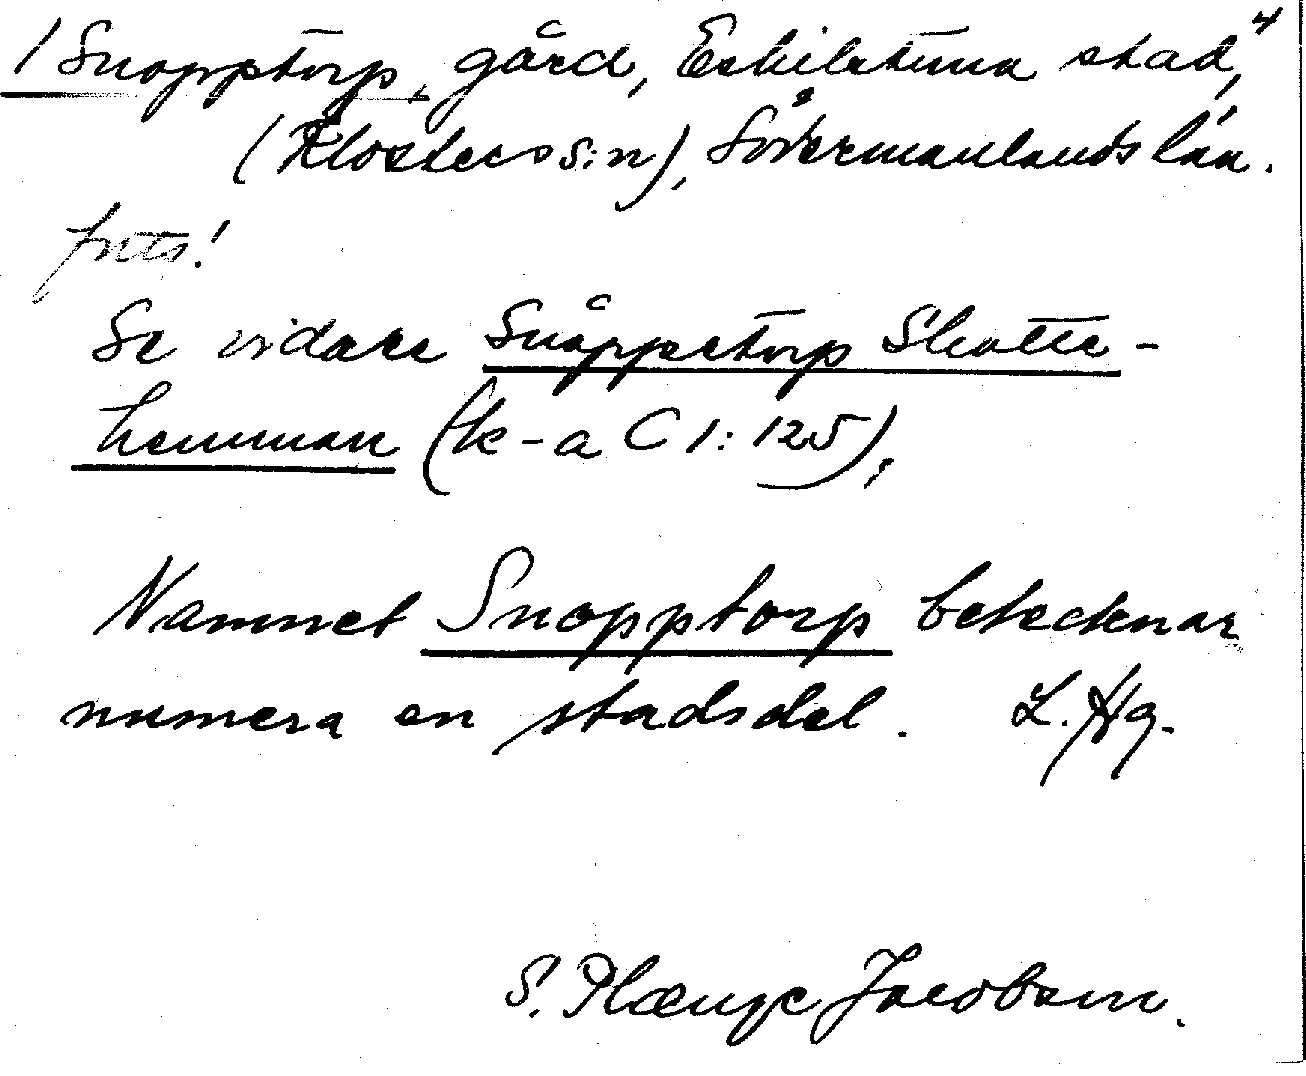 / Snopptorp, gård, Eskilstuna stad, 4
(Klosters s:n), Södermanlands län.
forts!
Se vidare Snåppetorp Skatte-
hemman (k-a C 1:125),
Namnet Snopptorp betecknar
numera en stadsdel. L. Hg.
S. Plænge Jacobson.